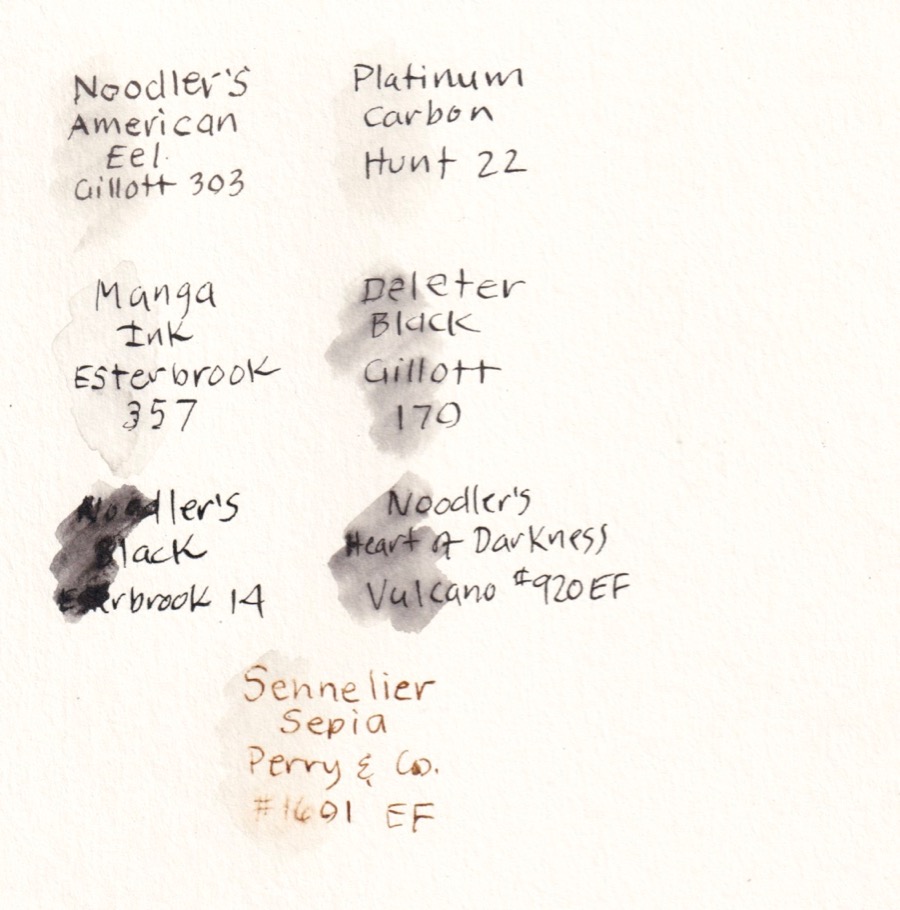 Noodler's
American
Eel
Gillott 303
Platinum
Carbon
Hunt 22
Manga
Ink
Esterbrook
357
Deleter
Black
Gillott
170
Noodler's
Black
Esterbrook 14
Noodler's
Heart of Darkness
Vulcano #920EF
Sennelier
Sepia
Perry & Co.
#1691 EF